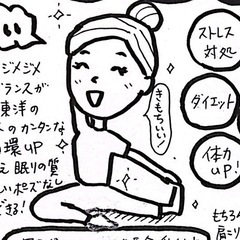 い
ジメジメ
ランスが
東洋の
のカンタンな
環UP
え 眠りの質
いポーズなし
できる!
きもちいい!
ストレス
対処
ダイエット
体力
UP!
もちろん
肩こり